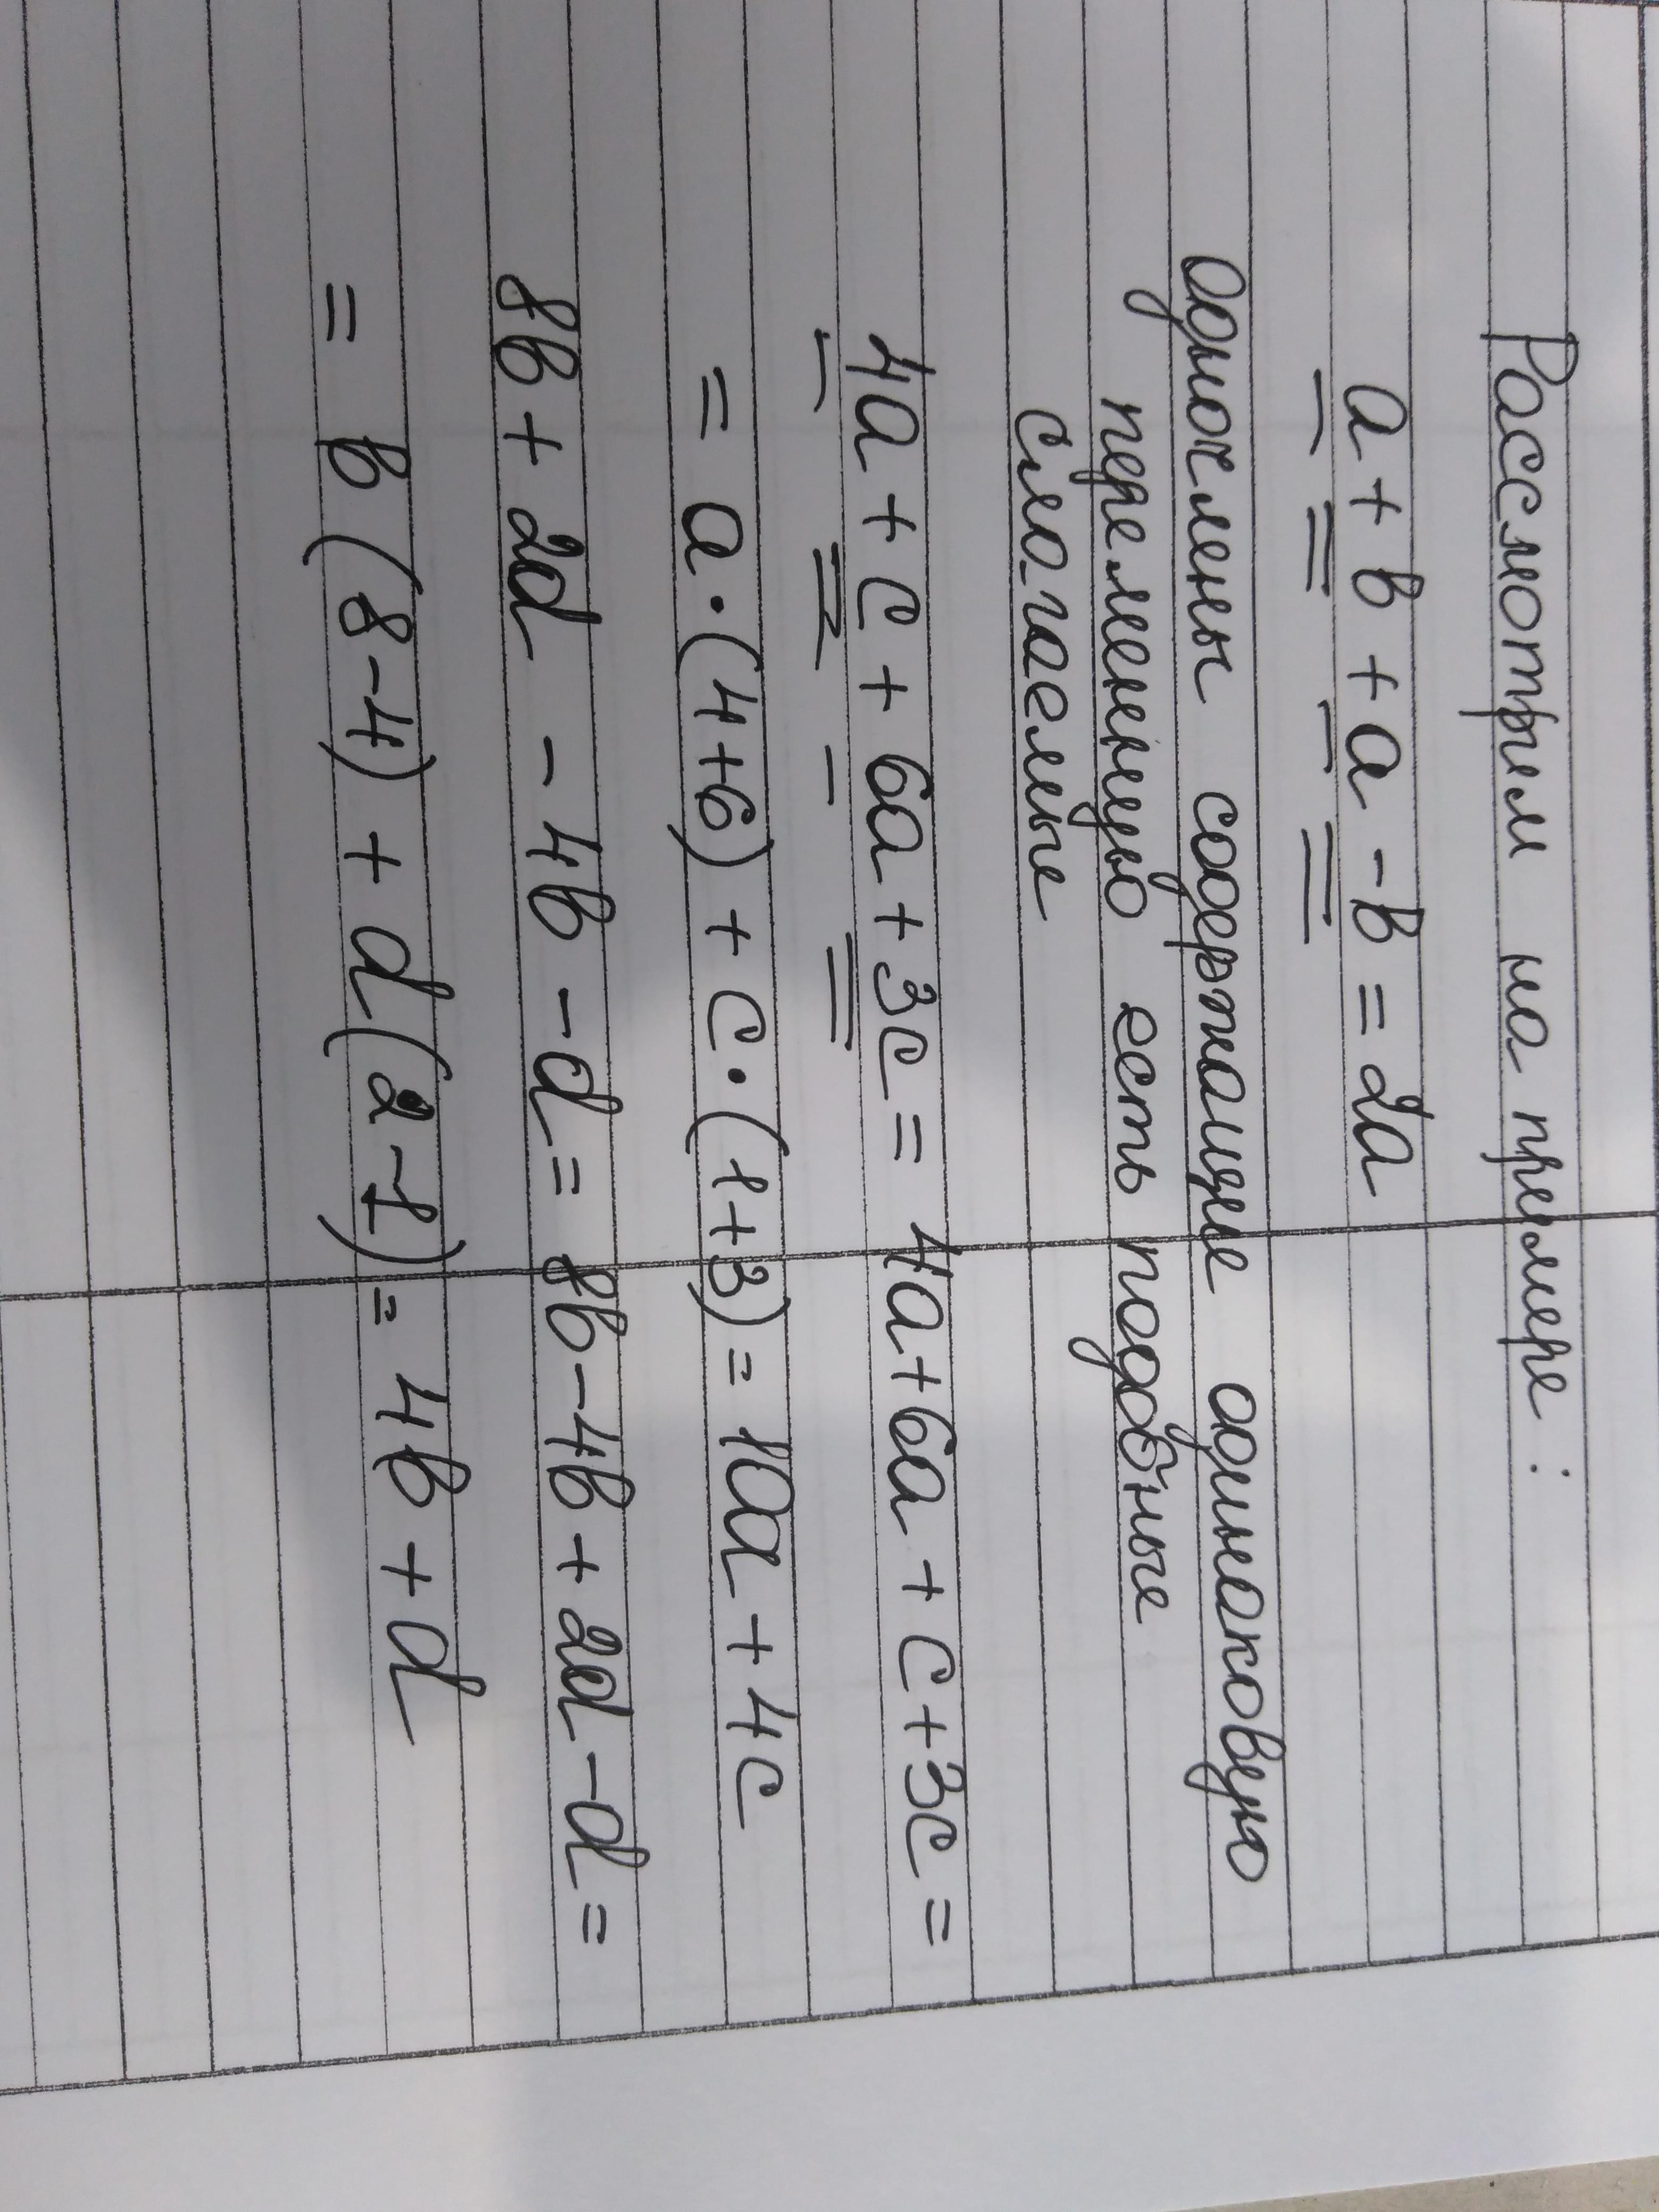 Рассмотрим на примере:
a + b + a - b = 2a
одночлены содержащие одинаковую
переменную есть подобные
слагаемые
4a + c + 6a + 3c = 4a + 6a + c + 3c =
= a · (4+6) + c · (1+3) = 10a + 4c
8b + 2d - 4b - d = 8b - 4b + 2d - d =
= b (8-4) + d (2-1) = 4b + d